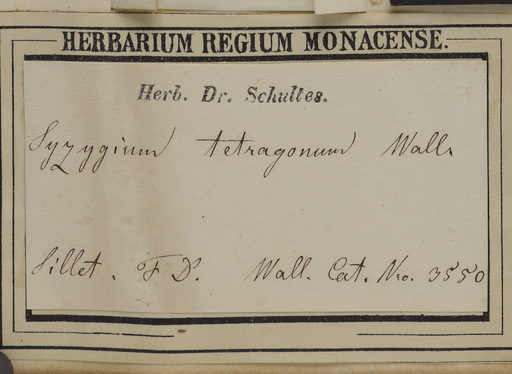 HERBARIUM REGIUM MONACENSE.
Herb. Dr. Schultes.
Syzygium tetragonum Wall.
Sillet. F D. Wall. Cat. No. 3550